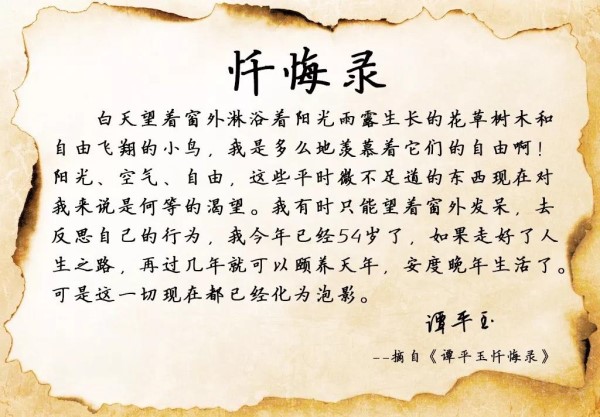 忏悔录
白天望着窗外淋浴着阳光雨露生长的花草树木和
自由飞翔的小鸟，我是多么地羡慕着它们的自由啊！
阳光、空气、自由，这些平时微不足道的东西现在对
我来说是何等的渴望。我有时只能望着窗外发呆，去
反思自己的行为，我今年已经54岁了，如果走好了人
生之路，再过几年就可以颐养天年，安度晚年生活了。
可是这一切现在都已经化为泡影。
谭平玉
--摘自《谭平玉忏悔录》